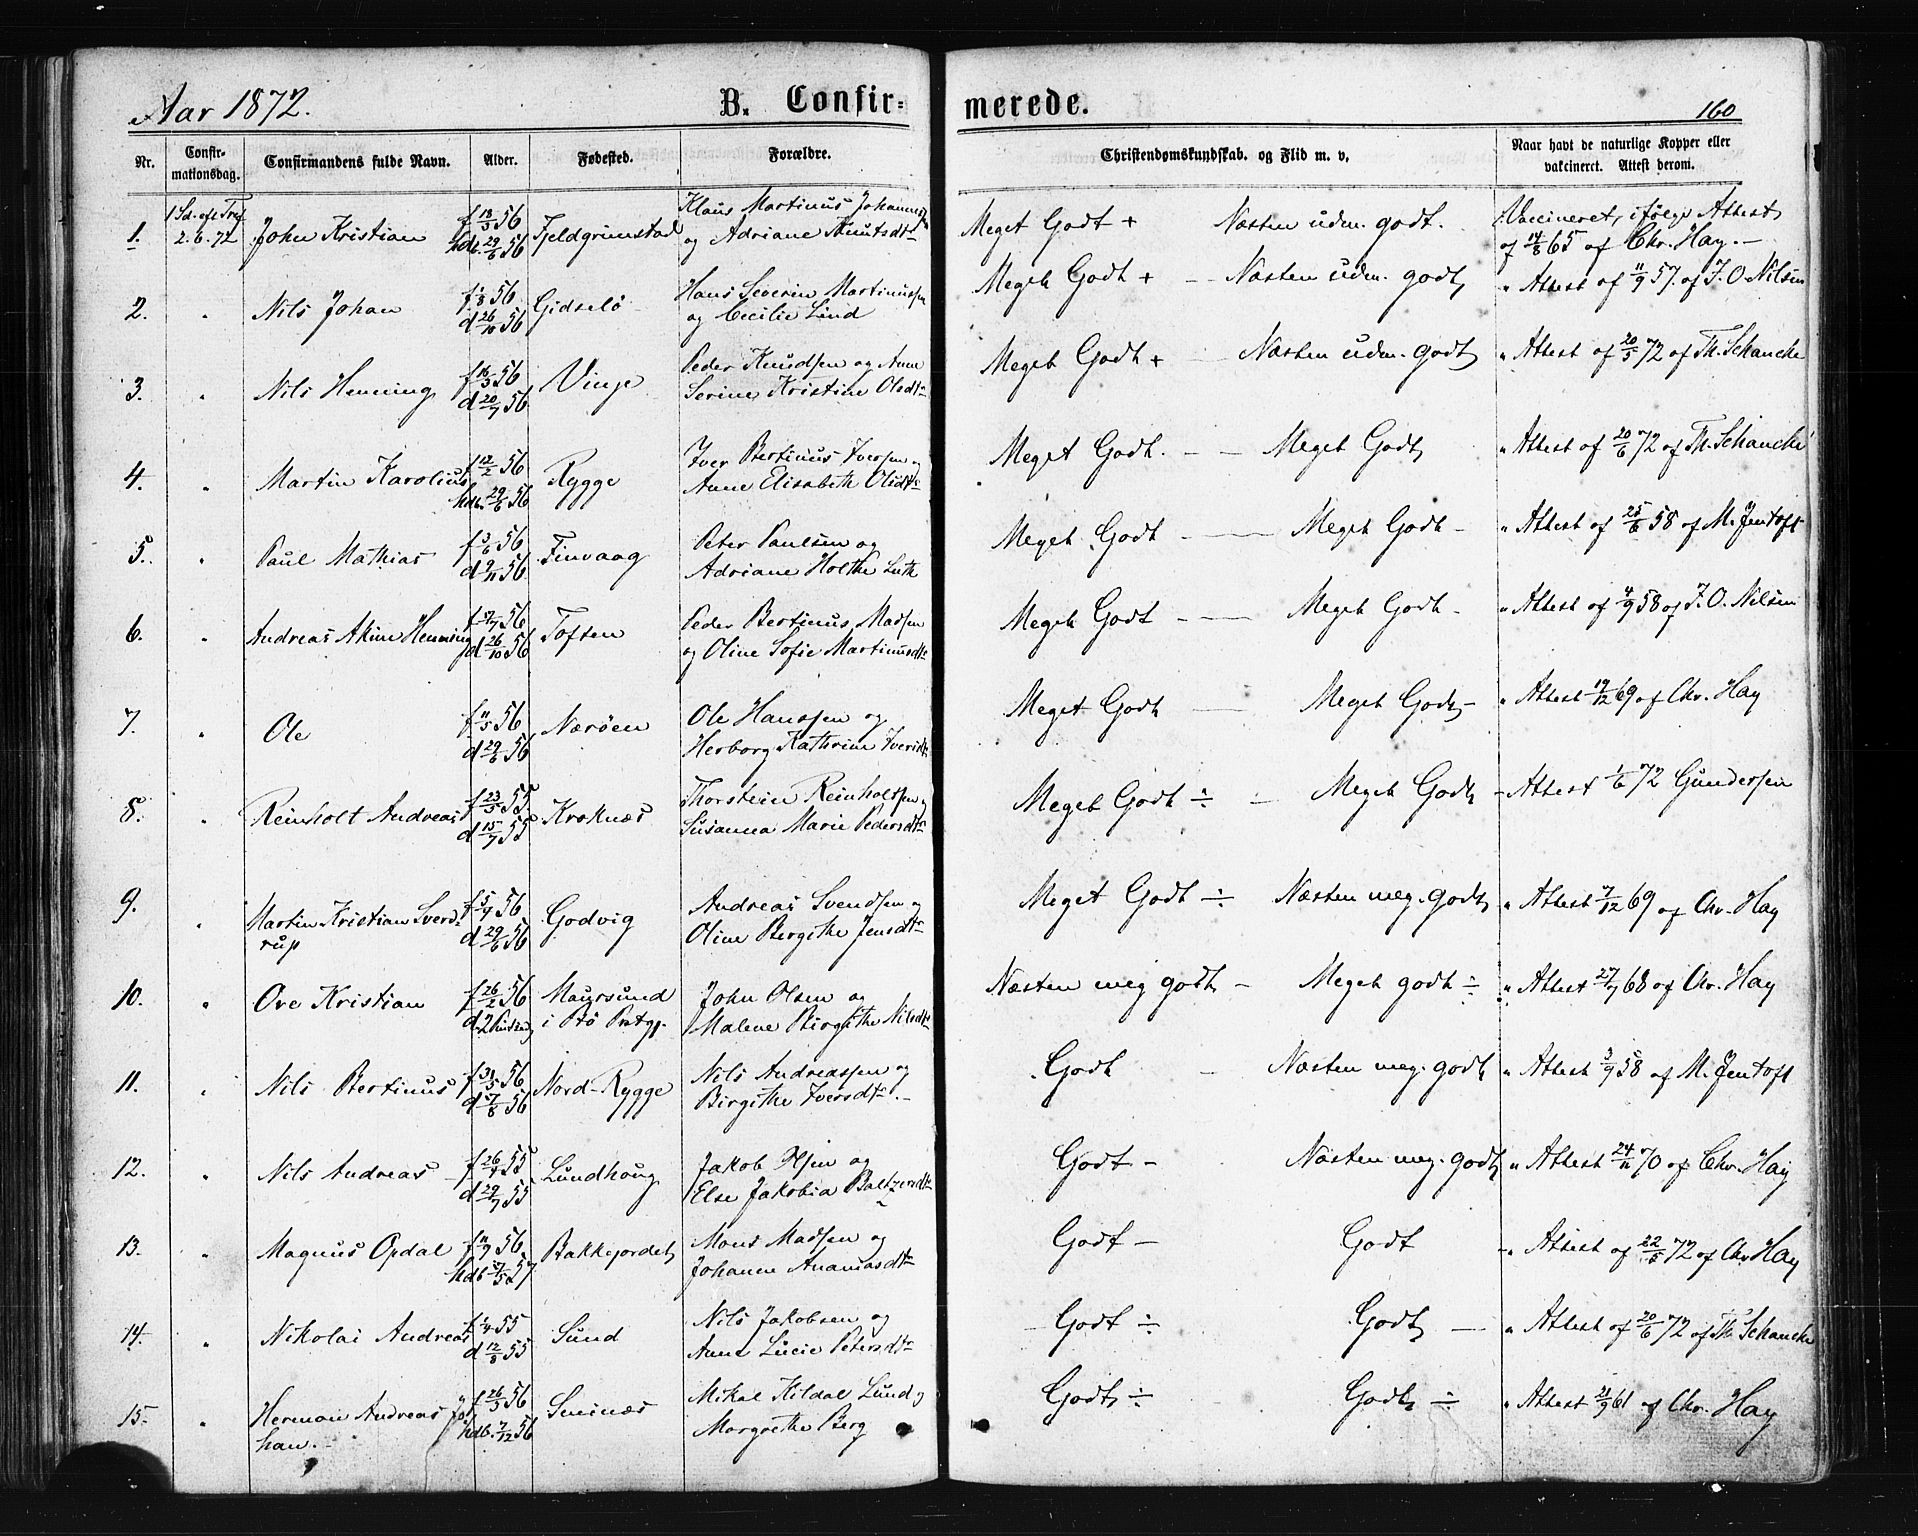 Aar 1872. B. Confir= merede. 160
Nr. Confir-mationsdag. Confirmandens fulde Navn. Alder. Fødested. Forældre. Christendomskundskab. og Flid m. v. Naar havt de naturlige Kopper eller vakcineret. Attest derom.
1 Sd. eft Tref. f 13/3 56 Klaus Martinus Johannes Vaccineret, ifølge Attest
1. 2.6.72 John Kristian hdb. 29/6 56 Fjeldgrimstad og Adriane Knutsdtr Meget Godt + Næsten udm. godt. af 14/8 65 af Chr. Hay. –
2. " Nils Johan 56 Gidselö Hans Severin Martinussen Meget Godt + – Næsten udm. godt " Attest af 11/9 57. af J. O. Nilsen
d 26/10 56 og Cecilie Lind
3. " Nils Henning f 16/3 56 Vinje Peder Knudsen og Anne Meget Godt + Næsten udm. godt " Attest af 20/5 72 af Th. Schancke
d 20/7 56 Serine Kristine Olsdtr
4. " Martin Karolius f 12/2 56 Rygge Iver Bertinus Iversen og Meget Godt. – – Meget Godt " Attest af 20/6 72 af Th. Schancke
hdb. 29/6 56 Anne Elisabeth Olsdtr
5. " Paul Mathias f 3/6 56 Finvaag Peter Paulsen og Meget Godt – Meget Godt – " Attest af 25/6 58 af M. Jentoft
d 9/11 56 Adriane Holthe Luth
6. " Andreas Akim Henning 56 Toften Peder Bertinus Madsen Meget Godt – – Meget Godt – " Attest af 4/9 58 af J. O. Nilsen
d 26/10 56 og Oline Sofie Martinusdtr
7. " Ole f 11/5 56 Nærøen Ole Hanssen og Meget Godt – Meget Godt – " Attest 19/12 69 af Chr. Hay
d 29/6 56 Herborg Kathrine Iversdtr
8. " Reinholt Andreas f 23/5 55. Kroknæs Thorstein Reinholtsen og Meget Godt ÷ – Meget Godt – Attest 1/6 72 Gundersen
d 15/7 55 Susanna Marie Pedersdtr
9. " Martin Kristian Sverd- f 5/4 56 Godvig Andreas Svendsen og Meget Godt ÷ Næsten meg. godt " Attest 7/12 69 af Chr. Hay
rup d 29/6 56 Oline Bergithe Jensdtr
10. " Ove Kristian f 26/2 56 Maursund John Olsen og Næsten meg godt – Meget godt ÷ " Attest 27/7 68 af Chr. Hay
i Bö Prstgj. Malene Birgithe Nilsdtr
11. " Nils Bertinus f 31/5 56 Nord-Rygge Nils Andreassen og Godt – Næsten meg. godt " Attest 3/9 58 af M. Jentoft
d 7/8 56 Birgithe Iversdtr. –
12. " Nils Andreas f 26/4 55 Lundhoug Jakob Olsen og Godt – Næsten meg. godt " Attest 24/11 70 af Chr. Hay
d 29/7 55 Else Jakobia Baltzersdtr
13. " Magnus Opdal f 11/9 56 Bakkejordet Mons Madsen og Godt – Godt – " Attest af 22/5 72 af Chr Hay
hdb 57 Johanne Ananiasdtr
14. " Nikolai Andreas f 1/4 55 Sund Nils Jakobsen og Godt ÷ Godt – " Attest af 20/6 72 af Th. Schancke
d 12/8 55 Anne Lucie Petersdtr
15. " Herman Andreas Jo- f 26/3 56 Smines Mikal Kildal Lund og Godt ÷ Godt ÷ " Attest 21/9 61 af Chr. Hay
han. – hdb. 7/12 56 Margrethe Berg